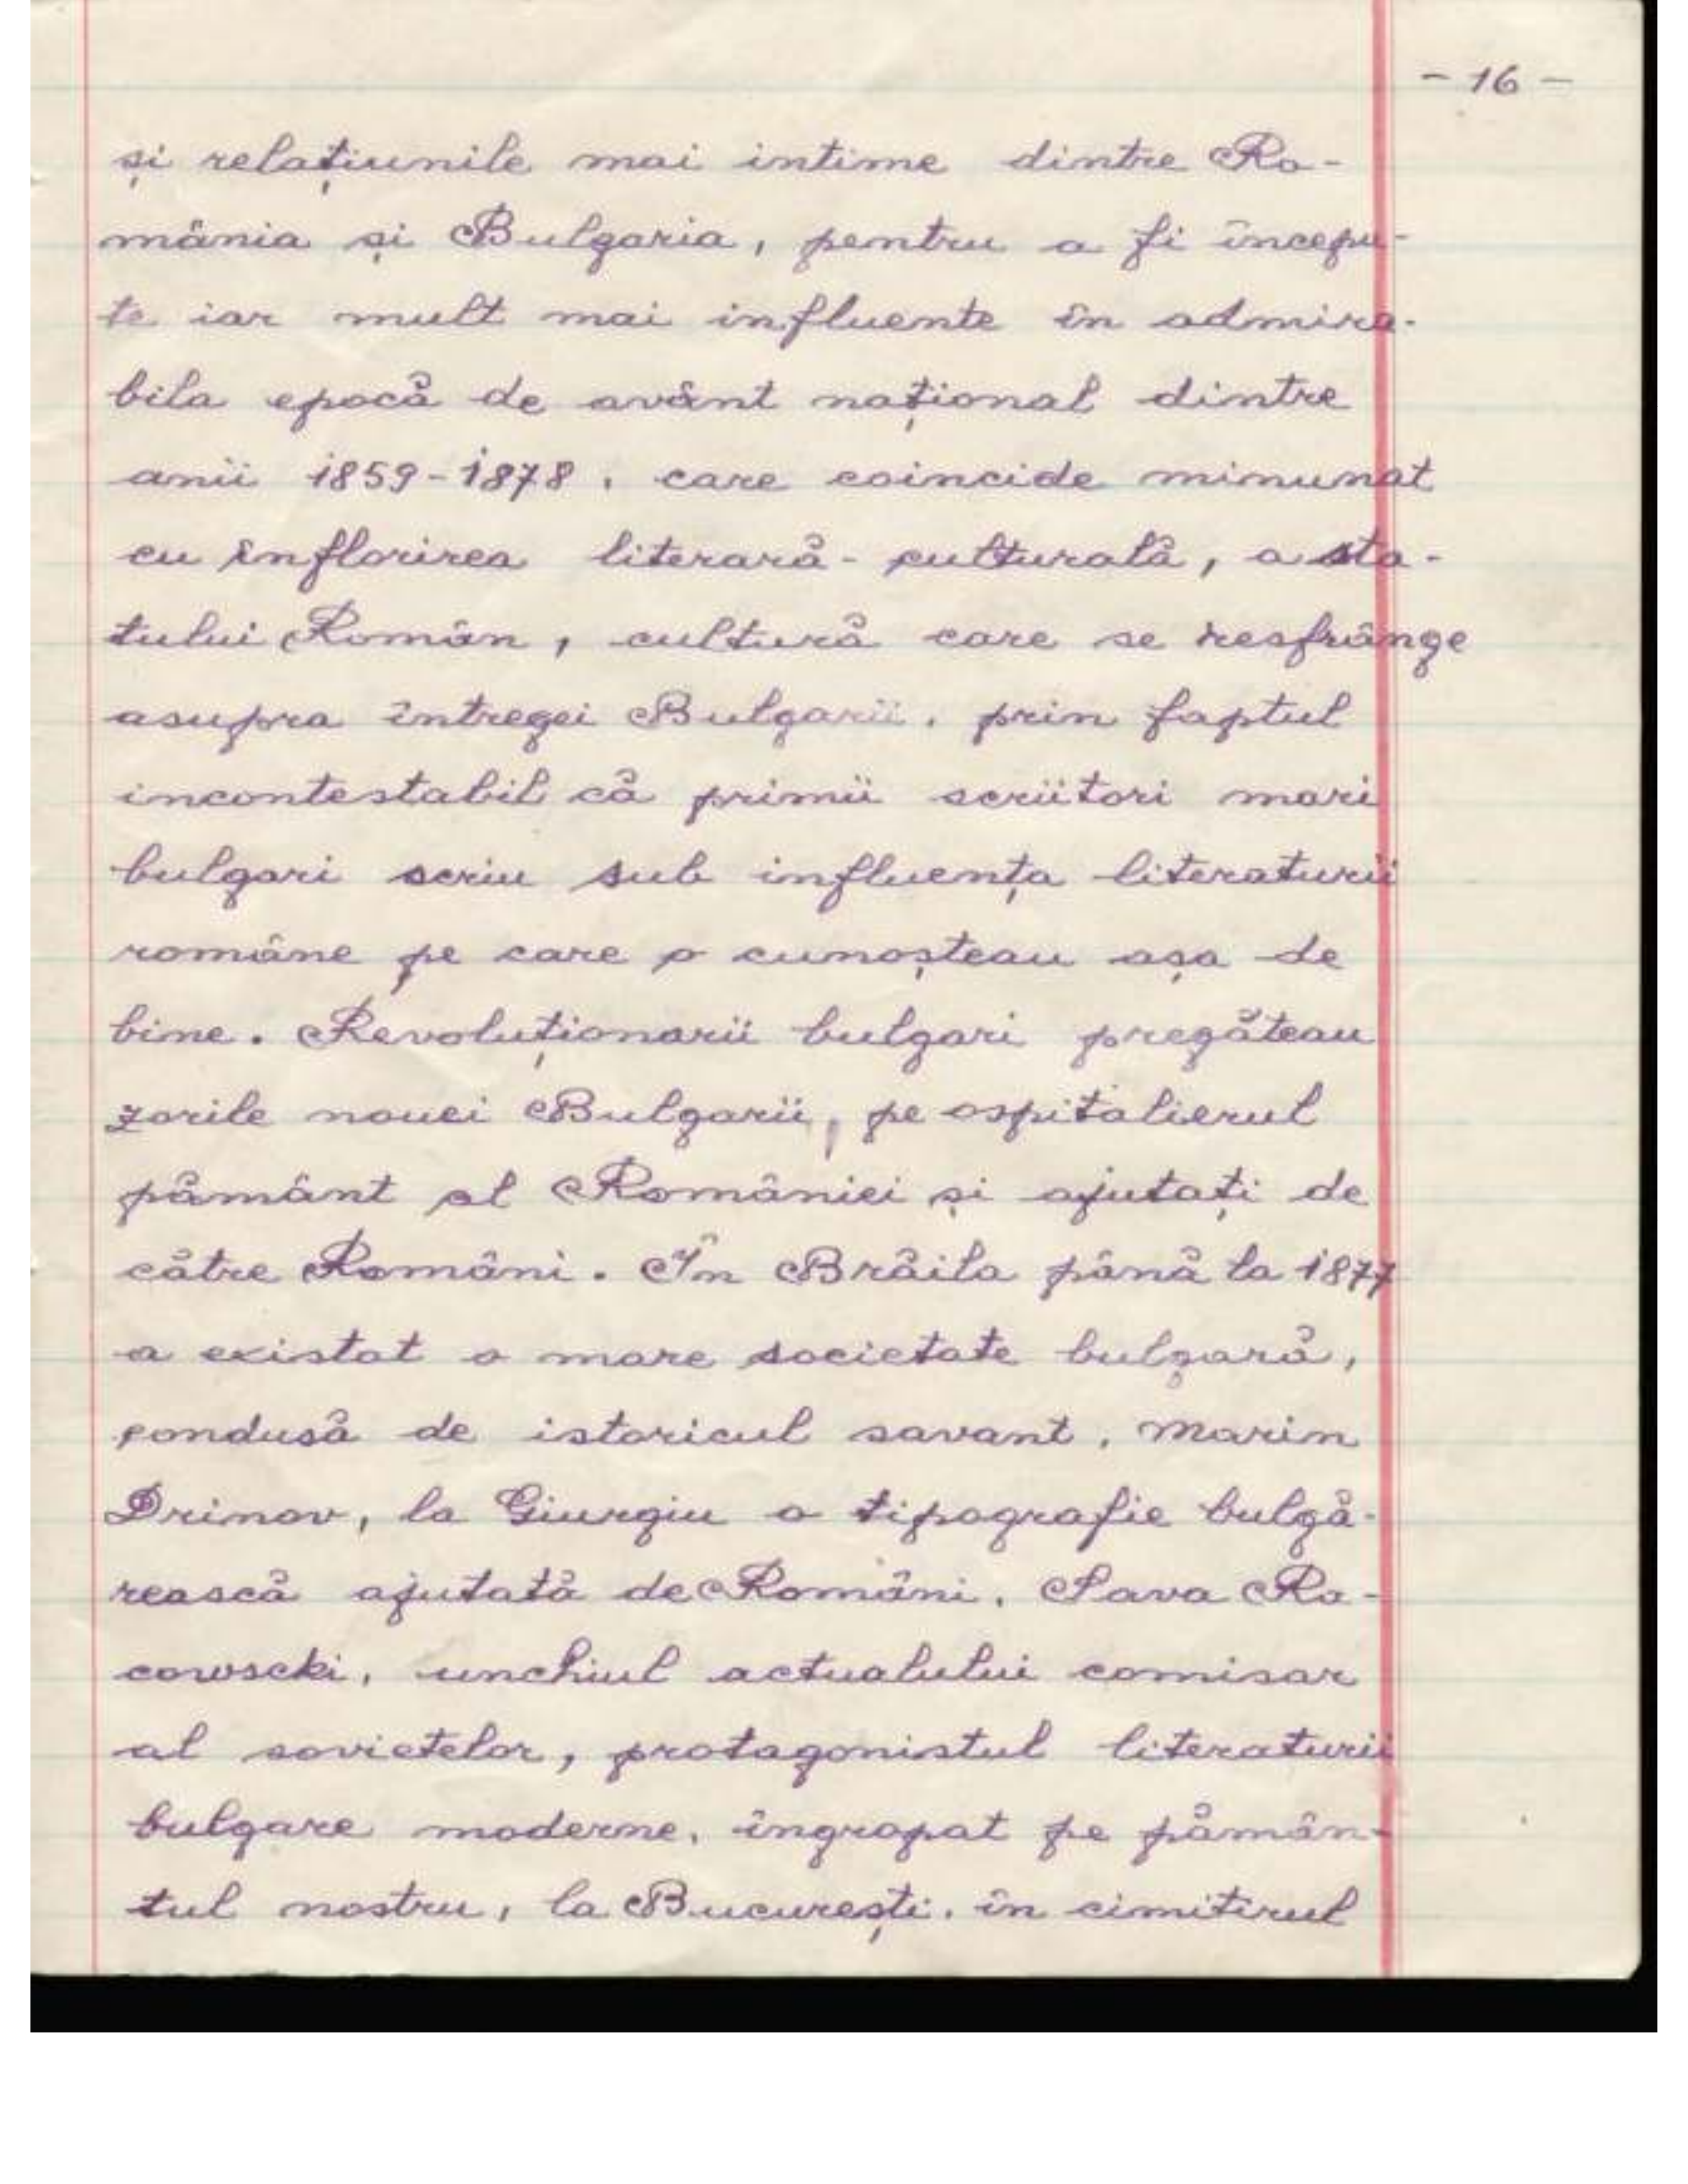 - 16 -
și relațiunile mai intime dintre Ro-
mânia și Bulgaria, pentru a fi începu-
te iar mult mai influente în admira-
bila epocă de avânt național dintre
anii 1859-1878, care coincide minunat
cu înflorirea literară-culturală, a sta-
tului Român, cultură care se resfrânge
asupra întregei Bulgarii, prin faptul
incontestabil că primii scriitori mari
bulgari scriu sub influența literaturii
române pe care o cunoșteau așa de
bine. Revoluționarii bulgari pregăteau
zorile nouei Bulgarii, pe ospitalierul
pământ al României și ajutați de
către Români. În Brăila până la 1877
a existat o mare societate bulgară,
condusă de istoricul savant, Marin
Drinov, la Giurgiu o tipografie bulgă-
rească ajutată de Români. Sava Ra-
cowscki, unchiul actualului comisar
al sovietelor, protagonistul literaturii
bulgare moderne, îngropat pe pămân-
tul nostru, la București, în cimitirul